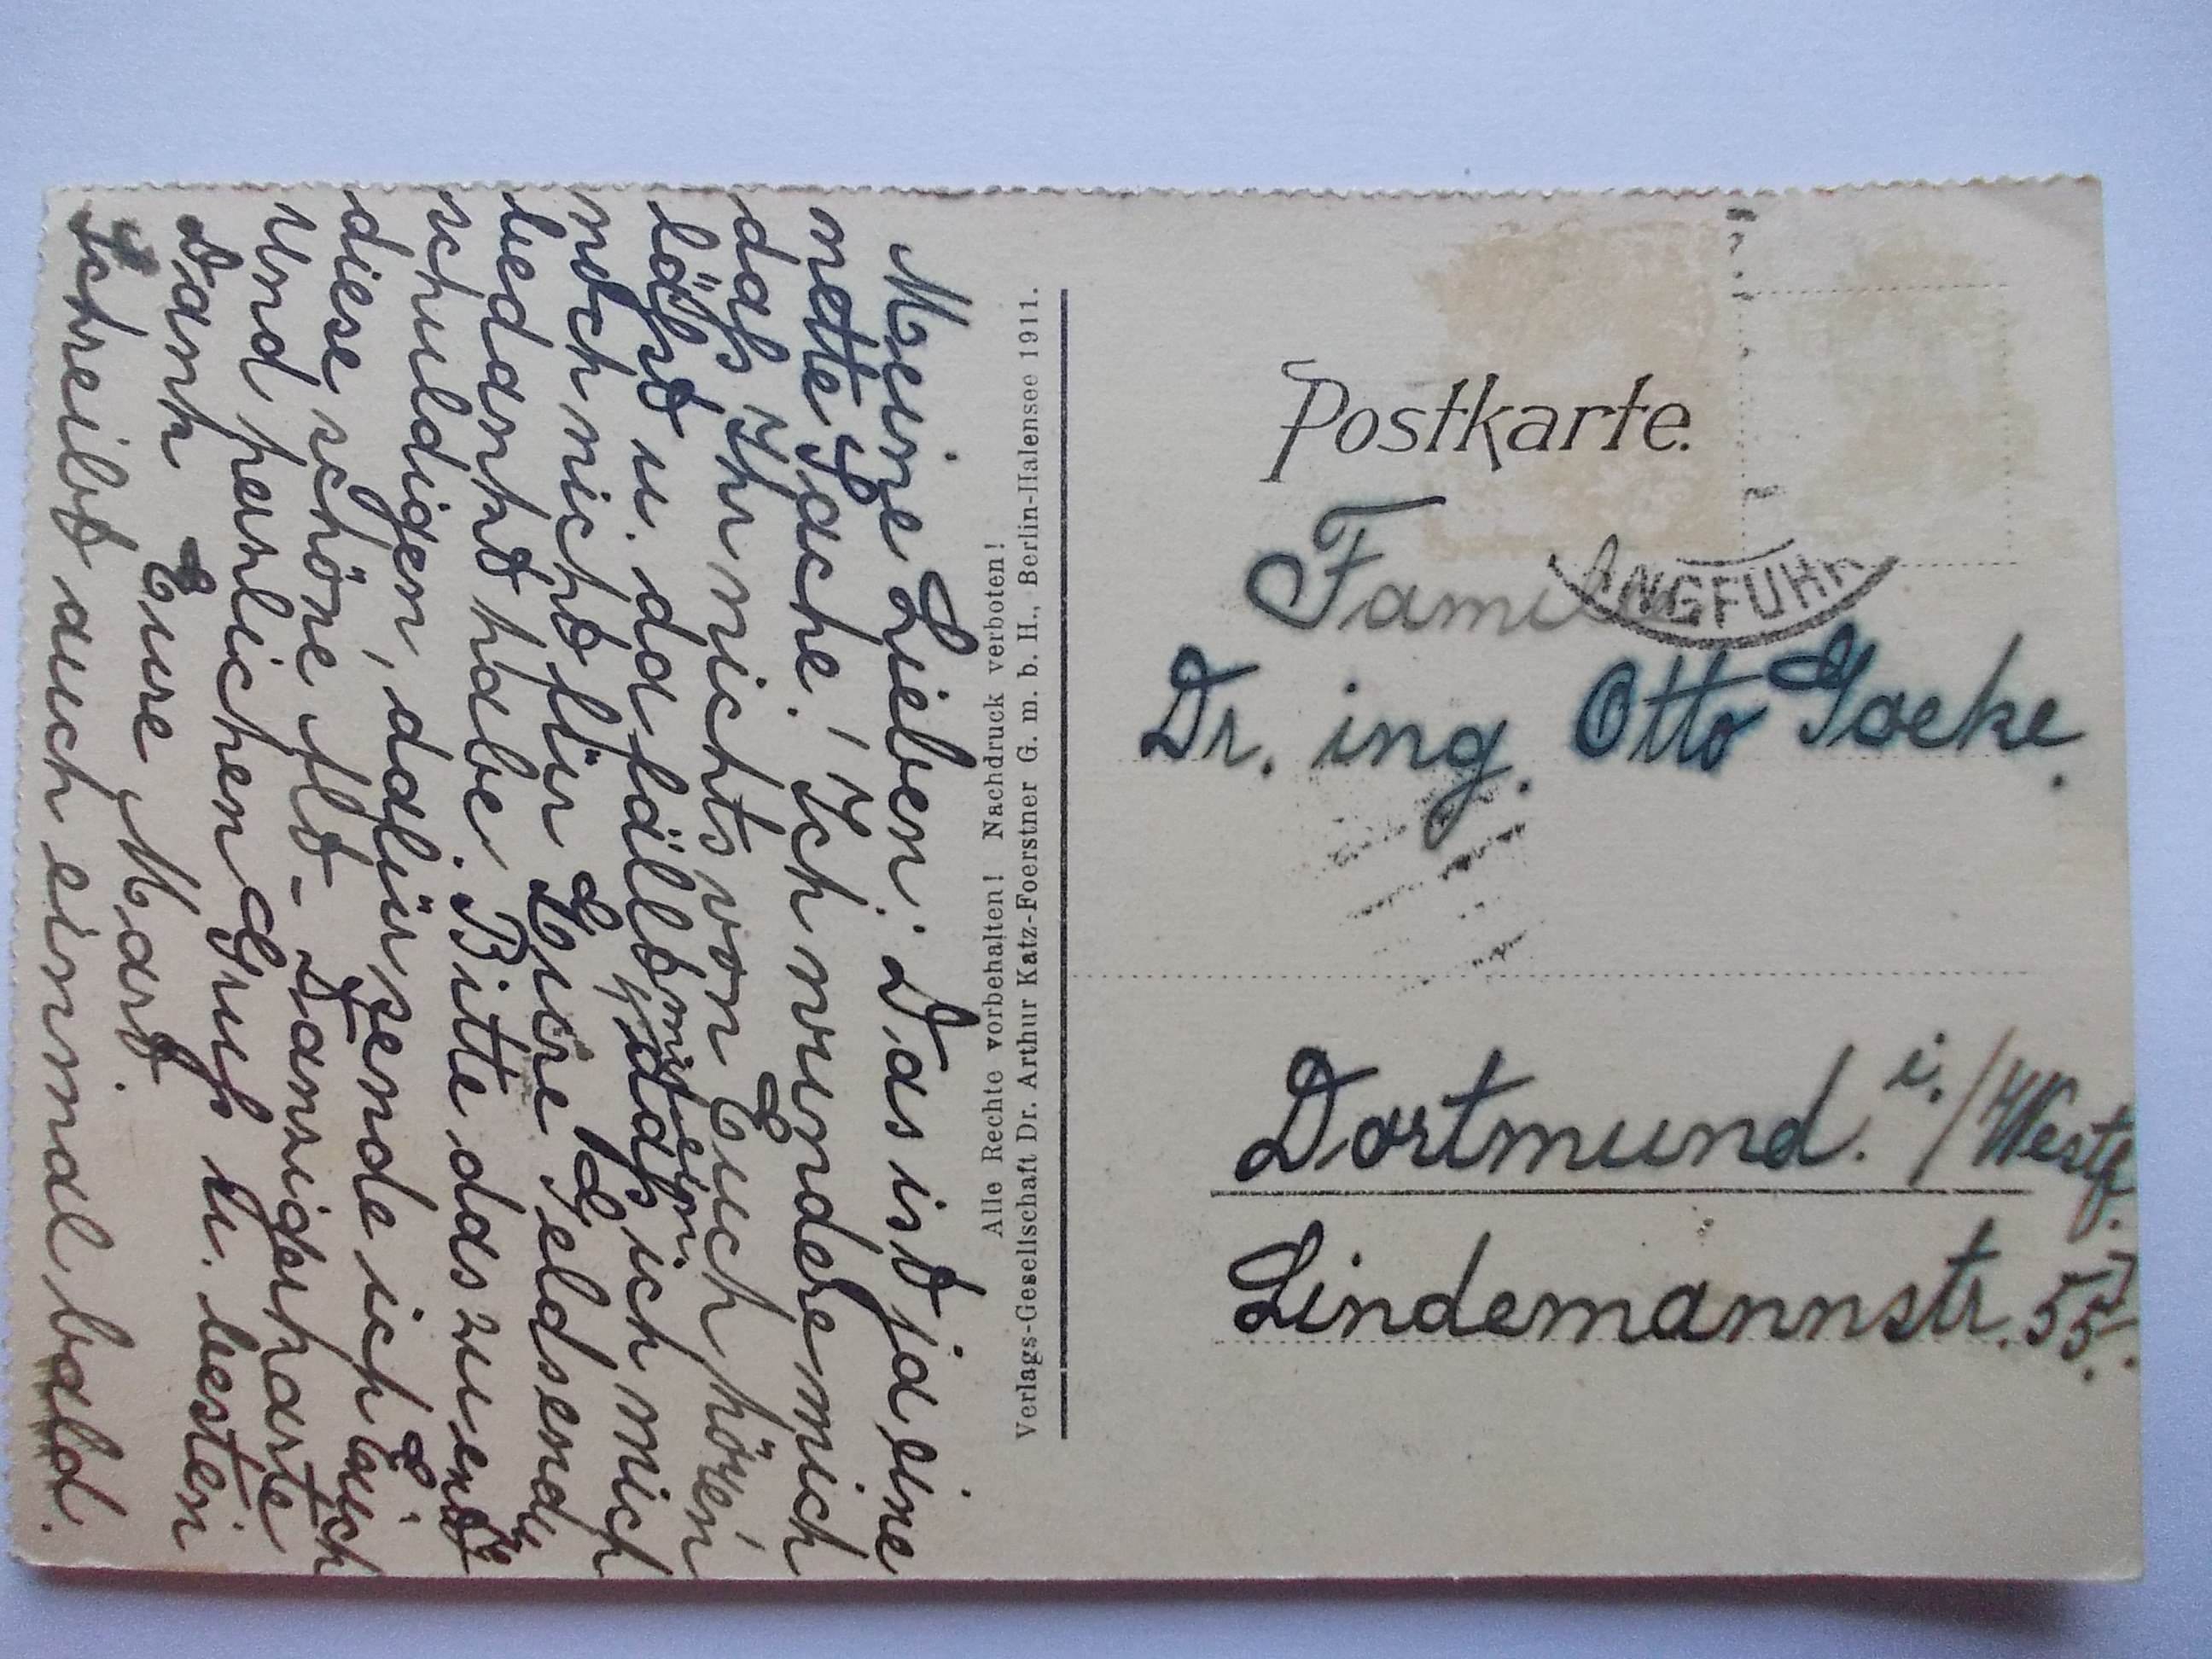 Meine Lieben. Das ist ja eine
nette Sache! Ich wundere mich
daß Ihr nichts von Euch hören
läßt u. da fällt mir ein,
daß ich mich
noch nicht für Eure Geldsendg
bedankt habe. Bitte das zu ent
schuldigen, dafür sende ich Euch
diese schöne Alt- Danzigerkarte
und herzlichen Gruß u. besten
Dank Eure Mart.
Schreibt auch einmal bald.
Alle Rechte vorbehalten! Nachdruck verboten!
Verlags-Gesellschaft Dr. Arthur Katz-Foerstner G. m. b. H., Berlin-Halensee 1911.
Postkarte.
ANGFUHR
Familie
Dr. ing. Otto Goeke.
Dortmund. i./Westf.
Lindemannstr. 55